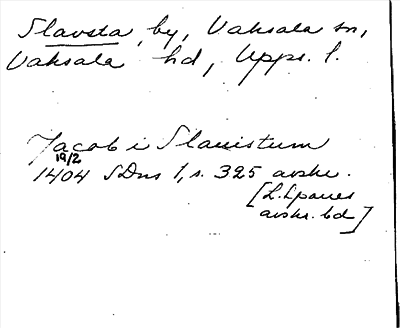 Slavsta, by, Vaksala sn,
Vaksala hd, Upps. l.
Jacob i Slauistum
19/2
1404 SDns 1, s. 325 avskr.
[L. Sparres
avskr. bd]